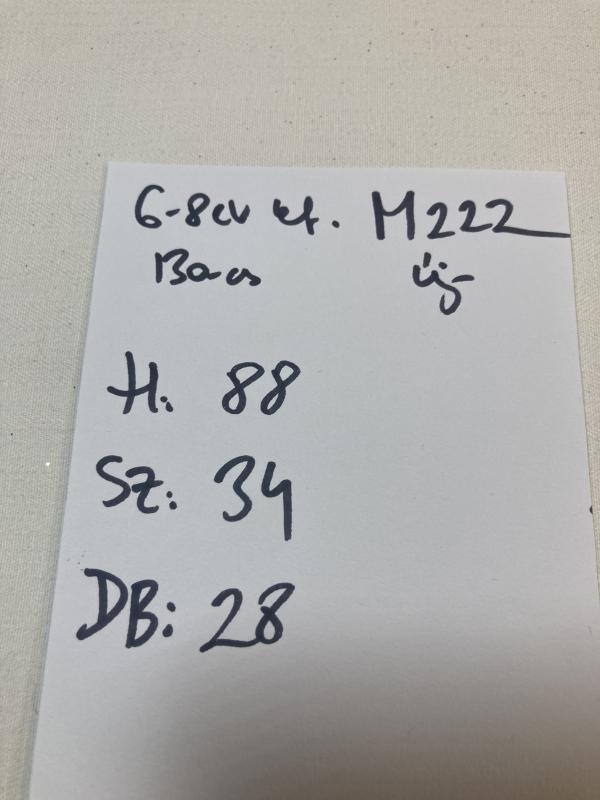 6-8 cv kf. M222
Bacs új
H: 88
Sz: 34
DB: 28